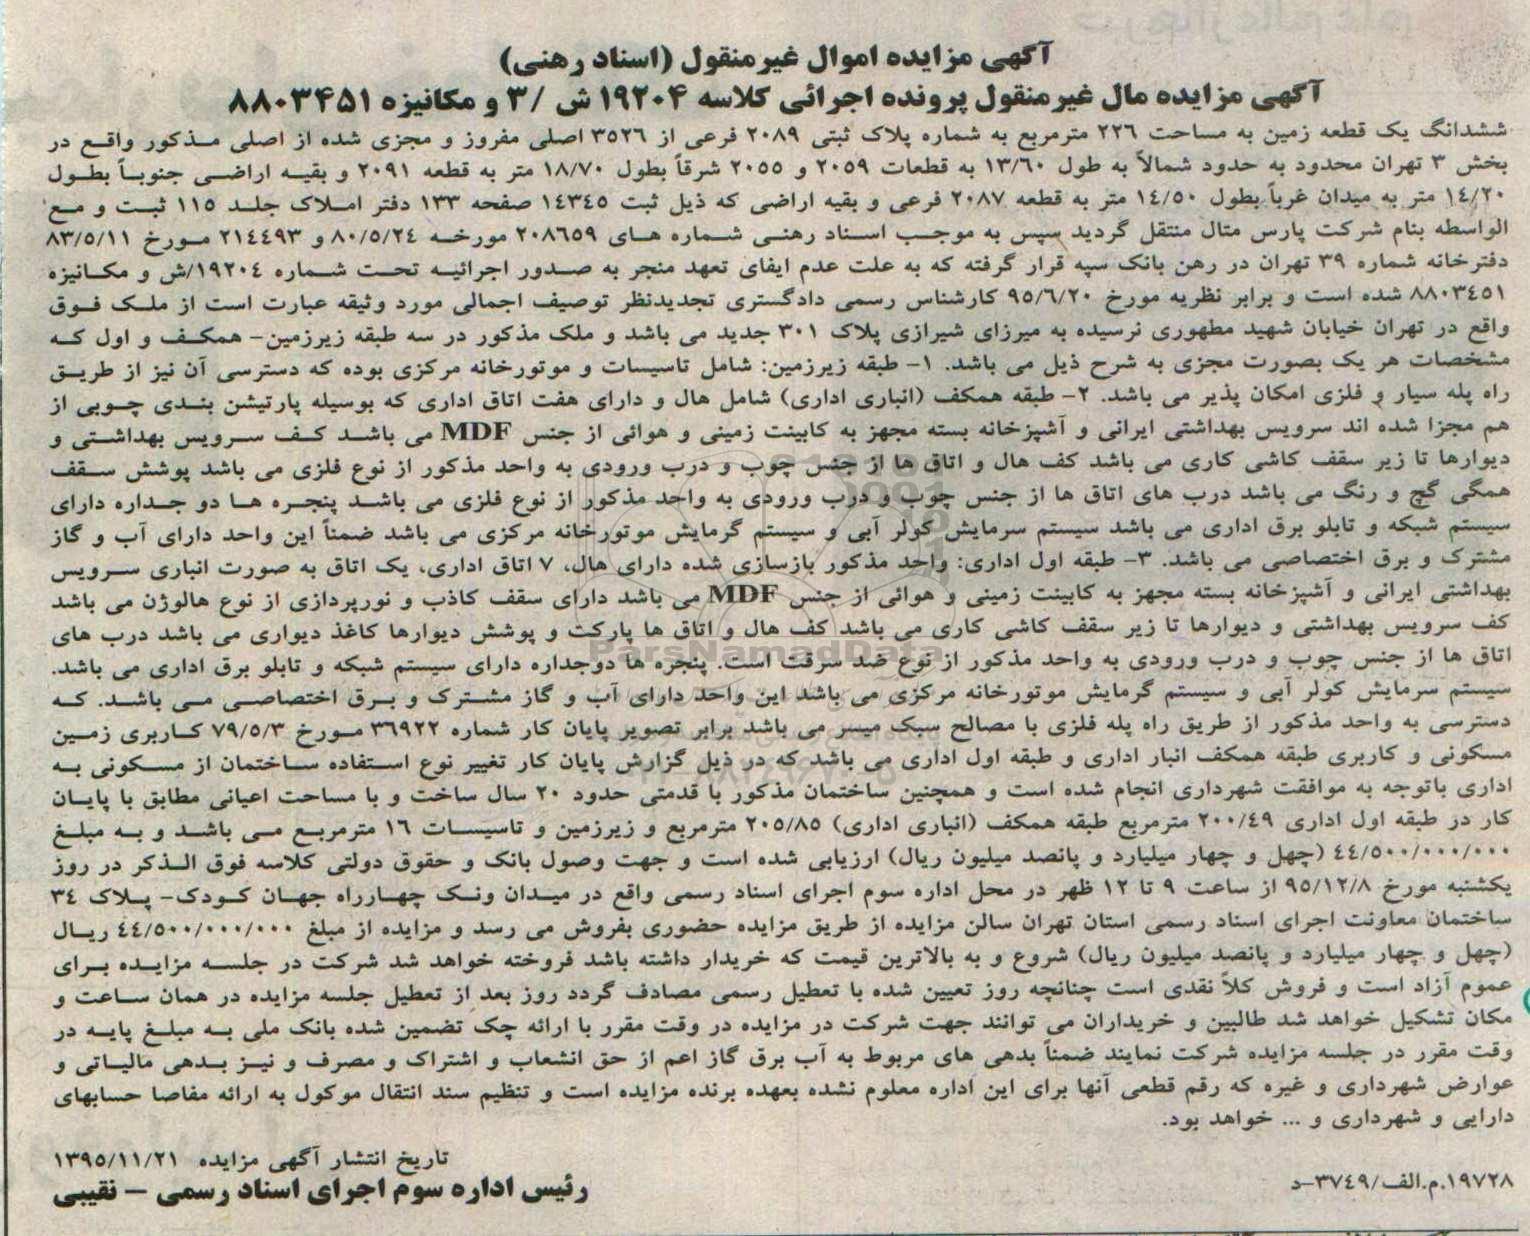 آگهی مزایده اموال غیرمنقول (اسناد رهنی)
آگهی مزایده مال غیرمنقول پرونده اجرائی کلاسه ۱۹۲۰۴ ش /۳ و مکانیزه ۸۸۰۳۴۵۱
ششدانگ یک قطعه زمین به مساحت ۲۲۶ مترمربع به شماره پلاک ثبتی ۲۰۸۹ فرعی از ۳۵۲۶ اصلی مفروز و مجزی شده از اصلی مذکور واقع در
بخش ۳ تهران محدود به حدود شمالاً به طول ۱۳/۶۰ به قطعات ۲۰۵۹ و ۲۰۵۵ شرقاً بطول ۱۸/۷۰ متر به قطعه ۲۰۹۱ و بقیه اراضی جنوباً بطول
۱۴/۲۰ متر به میدان غرباً بطول ۱۴/۵۰ متر به قطعه ۲۰۸۷ فرعی و بقیه اراضی که ذیل ثبت ۱۴۳۴۵ صفحه ۱۳۳ دفتر املاک جلد ۱۱۵ ثبت و مع
الواسطه بنام شرکت پارس متال منتقل گردید سپس به موجب اسناد رهنی شماره های ۲۰۸۶۵۹ مورخه ۸۰/۵/۲۴ و ۲۱۴۴۹۳ مورخ ۸۳/۵/۱۱
دفترخانه شماره ۳۹ تهران در رهن بانک سپه قرار گرفته که به علت عدم ایفای تعهد منجر به صدور اجرائیه تحت شماره ۱۹۲۰۴/ش و مکانیزه
۸۸۰۳۴۵۱ شده است و برابر نظریه مورخ ۹۵/۶/۲۰ کارشناس رسمی دادگستری تجدیدنظر توصیف اجمالی مورد وثیقه عبارت است از ملک فوق
واقع در تهران خیابان شهید مطهوری نرسیده به میرزای شیرازی پلاک ۳۰۱ جدید می باشد و ملک مذکور در سه طبقه زیرزمین- همکف و اول که
مشخصات هر یک بصورت مجزی به شرح ذیل می باشد. ۱- طبقه زیرزمین: شامل تاسیسات و موتورخانه مرکزی بوده که دسترسی آن نیز از طریق
راه پله سیار و فلزی امکان پذیر می باشد. ۲- طبقه همکف (انباری اداری) شامل هال و دارای هفت اتاق اداری که بوسیله پارتیشن بندی چوبی از
هم مجزا شده اند سرویس بهداشتی ایرانی و آشپزخانه بسته مجهز به کابینت زمینی و هوائی از جنس MDF می باشد کف سرویس بهداشتی و
دیوارها تا زیر سقف کاشی کاری می باشد کف هال و اتاق ها از جنس چوب و درب ورودی به واحد مذکور از نوع فلزی می باشد پوشش سقف
همگی گچ و رنگ می باشد درب های اتاق ها از جنس چوب و درب ورودی به واحد مذکور از نوع فلزی می باشد پنجره ها دو جداره دارای
سیستم شبکه و تابلو برق اداری می باشد سیستم سرمایش کولر آبی و سیستم گرمایش موتورخانه مرکزی می باشد ضمناً این واحد دارای آب و گاز
مشترک و برق اختصاصی می باشد. ۳- طبقه اول اداری: واحد مذکور بازسازی شده دارای هال، ۷ اتاق اداری، یک اتاق به صورت انباری سرویس
بهداشتی ایرانی و آشپزخانه بسته مجهز به کابینت زمینی و هوائی از جنس MDF می باشد دارای سقف کاذب و نورپردازی از نوع هالوژن می باشد
کف سرویس بهداشتی و دیوارها تا زیر سقف کاشی کاری می باشد کف هال و اتاق ها پارکت و پوشش دیوارها کاغذ دیواری می باشد درب های
اتاق ها از جنس چوب و درب ورودی به واحد مذکور از نوع ضد سرقت است. پنجره ها دوجداره دارای سیستم شبکه و تابلو برق اداری می باشد.
سیستم سرمایش کولر آبی و سیستم گرمایش موتورخانه مرکزی می باشد این واحد دارای آب و گاز مشترک و برق اختصاصی می باشد. که
دسترسی به واحد مذکور از طریق راه پله فلزی با مصالح سبک میسر می باشد برابر تصویر پایان کار شماره ۳۶۹۲۲ مورخ ۷۹/۵/۳ کاربری زمین
مسکونی و کاربری طبقه همکف انبار اداری و طبقه اول اداری می باشد که در ذیل گزارش پایان کار تغییر نوع استفاده ساختمان از مسکونی به
اداری باتوجه به موافقت شهرداری انجام شده است و همچنین ساختمان مذکور با قدمتی حدود ۲۰ سال ساخت و با مساحت اعیانی مطابق با پایان
کار در طبقه اول اداری ۲۰۰/۴۹ مترمربع طبقه همکف (انباری اداری) ۲۰۵/۸۵ مترمربع و زیرزمین و تاسیسات ۱۶ مترمربع می باشد و به مبلغ
۴۴/۵۰۰/۰۰۰/۰۰۰ (چهل و چهار میلیارد و پانصد میلیون ریال) ارزیابی شده است و جهت وصول بانک و حقوق دولتی کلاسه فوق الذکر در روز
یکشنبه مورخ ۹۵/۱۲/۸ از ساعت ۹ تا ۱۲ ظهر در محل اداره سوم اجرای اسناد رسمی واقع در میدان ونک چهارراه جهان کودک- پلاک ۳۴
ساختمان معاونت اجرای اسناد رسمی استان تهران سالن مزایده از طریق مزایده حضوری بفروش می رسد و مزایده از مبلغ ۴۴/۵۰۰/۰۰۰/۰۰۰ ریال
(چهل و چهار میلیارد و پانصد میلیون ریال) شروع و به بالاترین قیمت که خریدار داشته باشد فروخته خواهد شد شرکت در جلسه مزایده برای
عموم آزاد است و فروش کلاً نقدی است چنانچه روز تعیین شده با تعطیل رسمی مصادف گردد روز بعد از تعطیل جلسه مزایده در همان ساعت و
مکان تشکیل خواهد شد طالبین و خریداران می توانند جهت شرکت در مزایده در وقت مقرر با ارائه چک تضمین شده بانک ملی به مبلغ پایه در
وقت مقرر در جلسه مزایده شرکت نمایند ضمناً بدهی های مربوط به آب برق گاز اعم از حق انشعاب و اشتراک و مصرف و نیز بدهی مالیاتی و
عوارض شهرداری و غیره که رقم قطعی آنها برای این اداره معلوم نشده بعهده برنده مزایده است و تنظیم سند انتقال موکول به ارائه مفاصا حسابهای
دارایی و شهرداری و ... خواهد بود.
تاریخ انتشار آگهی مزایده ۱۳۹۵/۱۱/۲۱
رئیس اداره سوم اجرای اسناد رسمی – نقیبی
۱۹۷۲۸.م.الف/۳۷۴۹-د
ParsNamadData